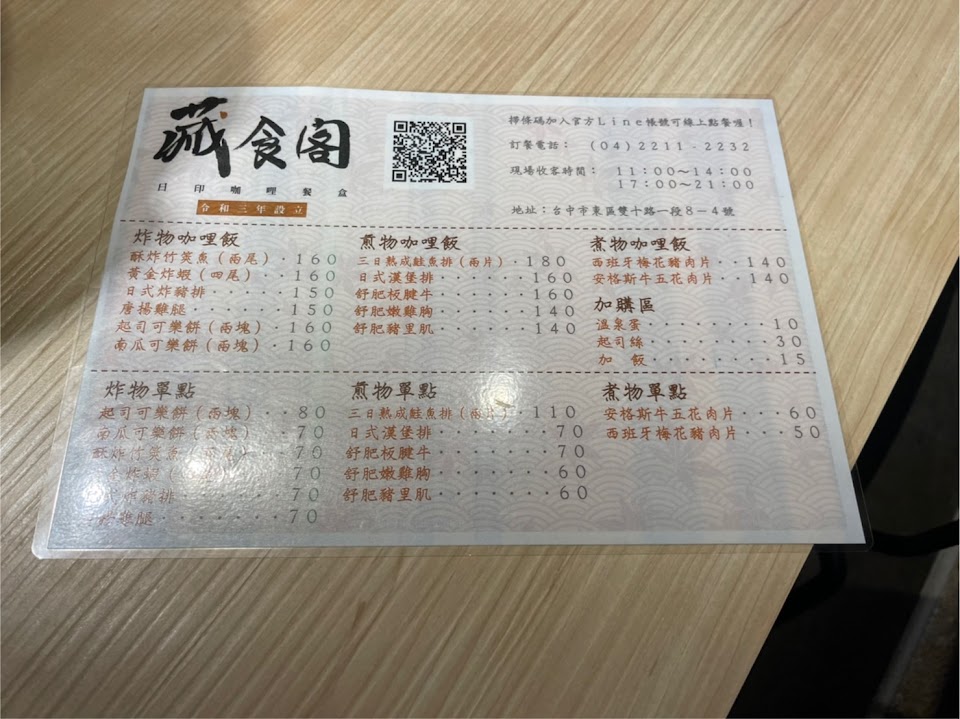 藏食閣
日印咖哩餐盒
令和三年設立
掃條碼加入官方Line帳號可線上點餐喔！
訂餐電話： (04)2211-2232
現場收客時間： 11:00～14:00
17:00～21:00
地址：台中市東區雙十路一段8－4號
炸物咖哩飯
酥炸竹筴魚(兩尾)・160
黃金炸蝦(四尾)・・160
日式炸豬排・・・・・150
唐揚雞腿・・・・・・150
起司可樂餅(兩塊)・160
南瓜可樂餅(兩塊)・160
煎物咖哩飯
三日熟成鮭魚排(兩片)・180
日式漢堡排・・・・・・160
舒肥板腱牛・・・・・・160
舒肥嫩雞胸・・・・・・140
舒肥豬里肌・・・・・・140
煮物咖哩飯
西班牙梅花豬肉片・・140
安格斯牛五花肉片・・140
加購區
溫泉蛋・・・・・・・・10
起司絲・・・・・・・・30
加 飯・・・・・・・・15
炸物單點
起司可樂餅(兩塊)・・80
南瓜可樂餅(兩塊)・・70
酥炸竹筴魚・70
炸蝦・70
豬排・・・・・・70
雞腿・・・・・・・70
煎物單點
三日熟成鮭魚排(兩片)・110
日式漢堡排・・・・・・・70
舒肥板腱牛・・・・・・・70
舒肥嫩雞胸・・・・・・・60
舒肥豬里肌・・・・・・・60
煮物單點
安格斯牛五花肉片・・・60
西班牙梅花豬肉片・・・50